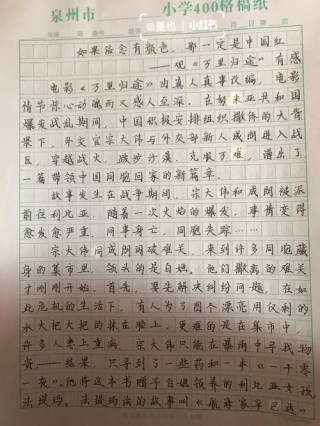 泉州市 小学400格稿纸
@麦也 小红书
如果信念有颜色，那一定是中国红
——观《万里归途》有感
电影《万里归途》由真事改编，电影
情节惊心动魄而又感人至深，在努米亚共和国
爆发战乱期间，中国积极安排组织撤侨的大背
景下，外交官宗大伟与外交部新人成朗进入战
区，穿越战火，跋涉沙漠，克服万难，谱出了
一篇带领中国同胞回家的新篇章。
故事发生在战争期间，宗大伟和成朗被派
前往利比亚，随着一次火焰的爆发，事情变得
愈发愈严重，同事身亡，同胞失踪……
宗大伟同成朗闯破难关，来到许多同胞藏
身的集市里，领头的是白婳。他们撤离的难关
才刚刚开始。首先，要先解决纠纷问题，在如
此危机的生活下，有人为了图个漂亮用仅剩的
水大把大把的抹在脸上，更难的是在集市中，
许多人患上重病，宗大伟只能在暴雨中寻找物
资——结果，只寻到了一些药和一本《一千零
一夜》。他将这本书赠予白婳领养的利比亚女孩
法提玛。法提玛读的故事叫《航海家辛巴达》